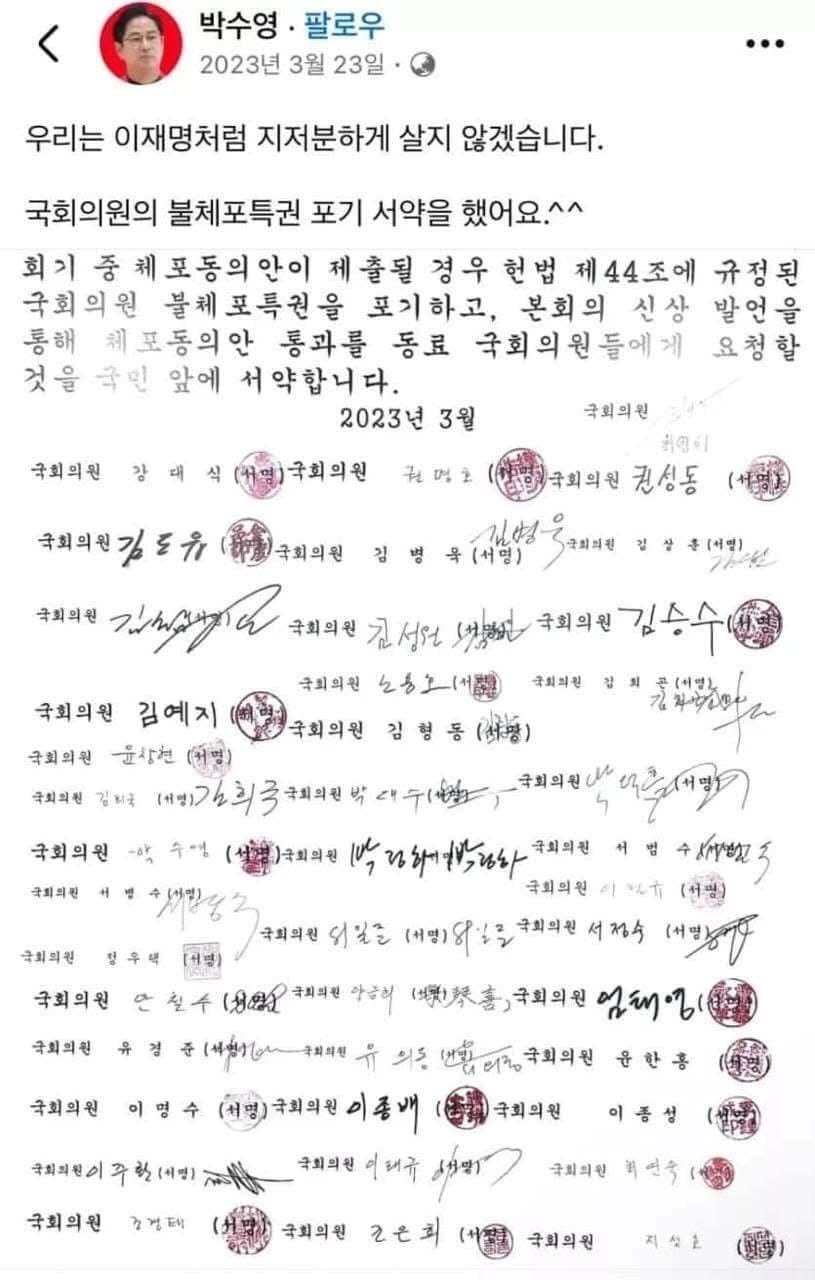 박수영 · 팔로우
2023년 3월 23일 ·
우리는 이재명처럼 지저분하게 살지 않겠습니다.
국회의원의 불체포특권 포기 서약을 했어요.^^
회기 중 체포동의안이 제출될 경우 헌법 제44조에 규정된
국회의원 불체포특권을 포기하고, 본회의 신상 발언을
통해 체포동의안 통과를 동료 국회의원들에게 요청할
것을 국민 앞에 서약합니다.
2023년 3월
국회의원
국회의원 강대식 (서명) 국회의원 권명호 (서명) 국회의원 권성동 (서명)
국회의원 김도읍 (서명) 국회의원 김병욱 (서명) 김병욱 국회의원 김상훈 (서명)
국회의원 (서명) 국회의원 김성원 (서명) 국회의원 김승수 (서명)
국회의원 노용호 (서명) 국회의원 김희곤 (서명)
국회의원 김예지 (서명) 국회의원 김형동 (서명)
국회의원 윤창현 (서명)
국회의원 김희국 (서명) 김희국 국회의원 박대수 (서명) 국회의원 박덕흠 (서명)
국회의원 박수영 (서명) 국회의원 박형수 국회의원 서범수 (서명)
국회의원 서병수 (서명) 국회의원 (서명)
국회의원 서일준 (서명) 서일준 국회의원 서정숙 (서명)
국회의원 정우택 (서명)
국회의원 안철수 (서명) 국회의원 양금희 (서명) 국회의원 엄태영 (서명)
국회의원 유경준 (서명) 국회의원 유의동 (서명) 국회의원 윤한홍 (서명)
국회의원 이명수 (서명) 국회의원 이종배 (서명) 국회의원 이종성 (서명)
국회의원 이주환 (서명) 국회의원 이태규 (서명) 국회의원 최연숙 (서명)
국회의원 조경태 (서명) 국회의원 조은희 (서명) 국회의원 지성호 (서명)